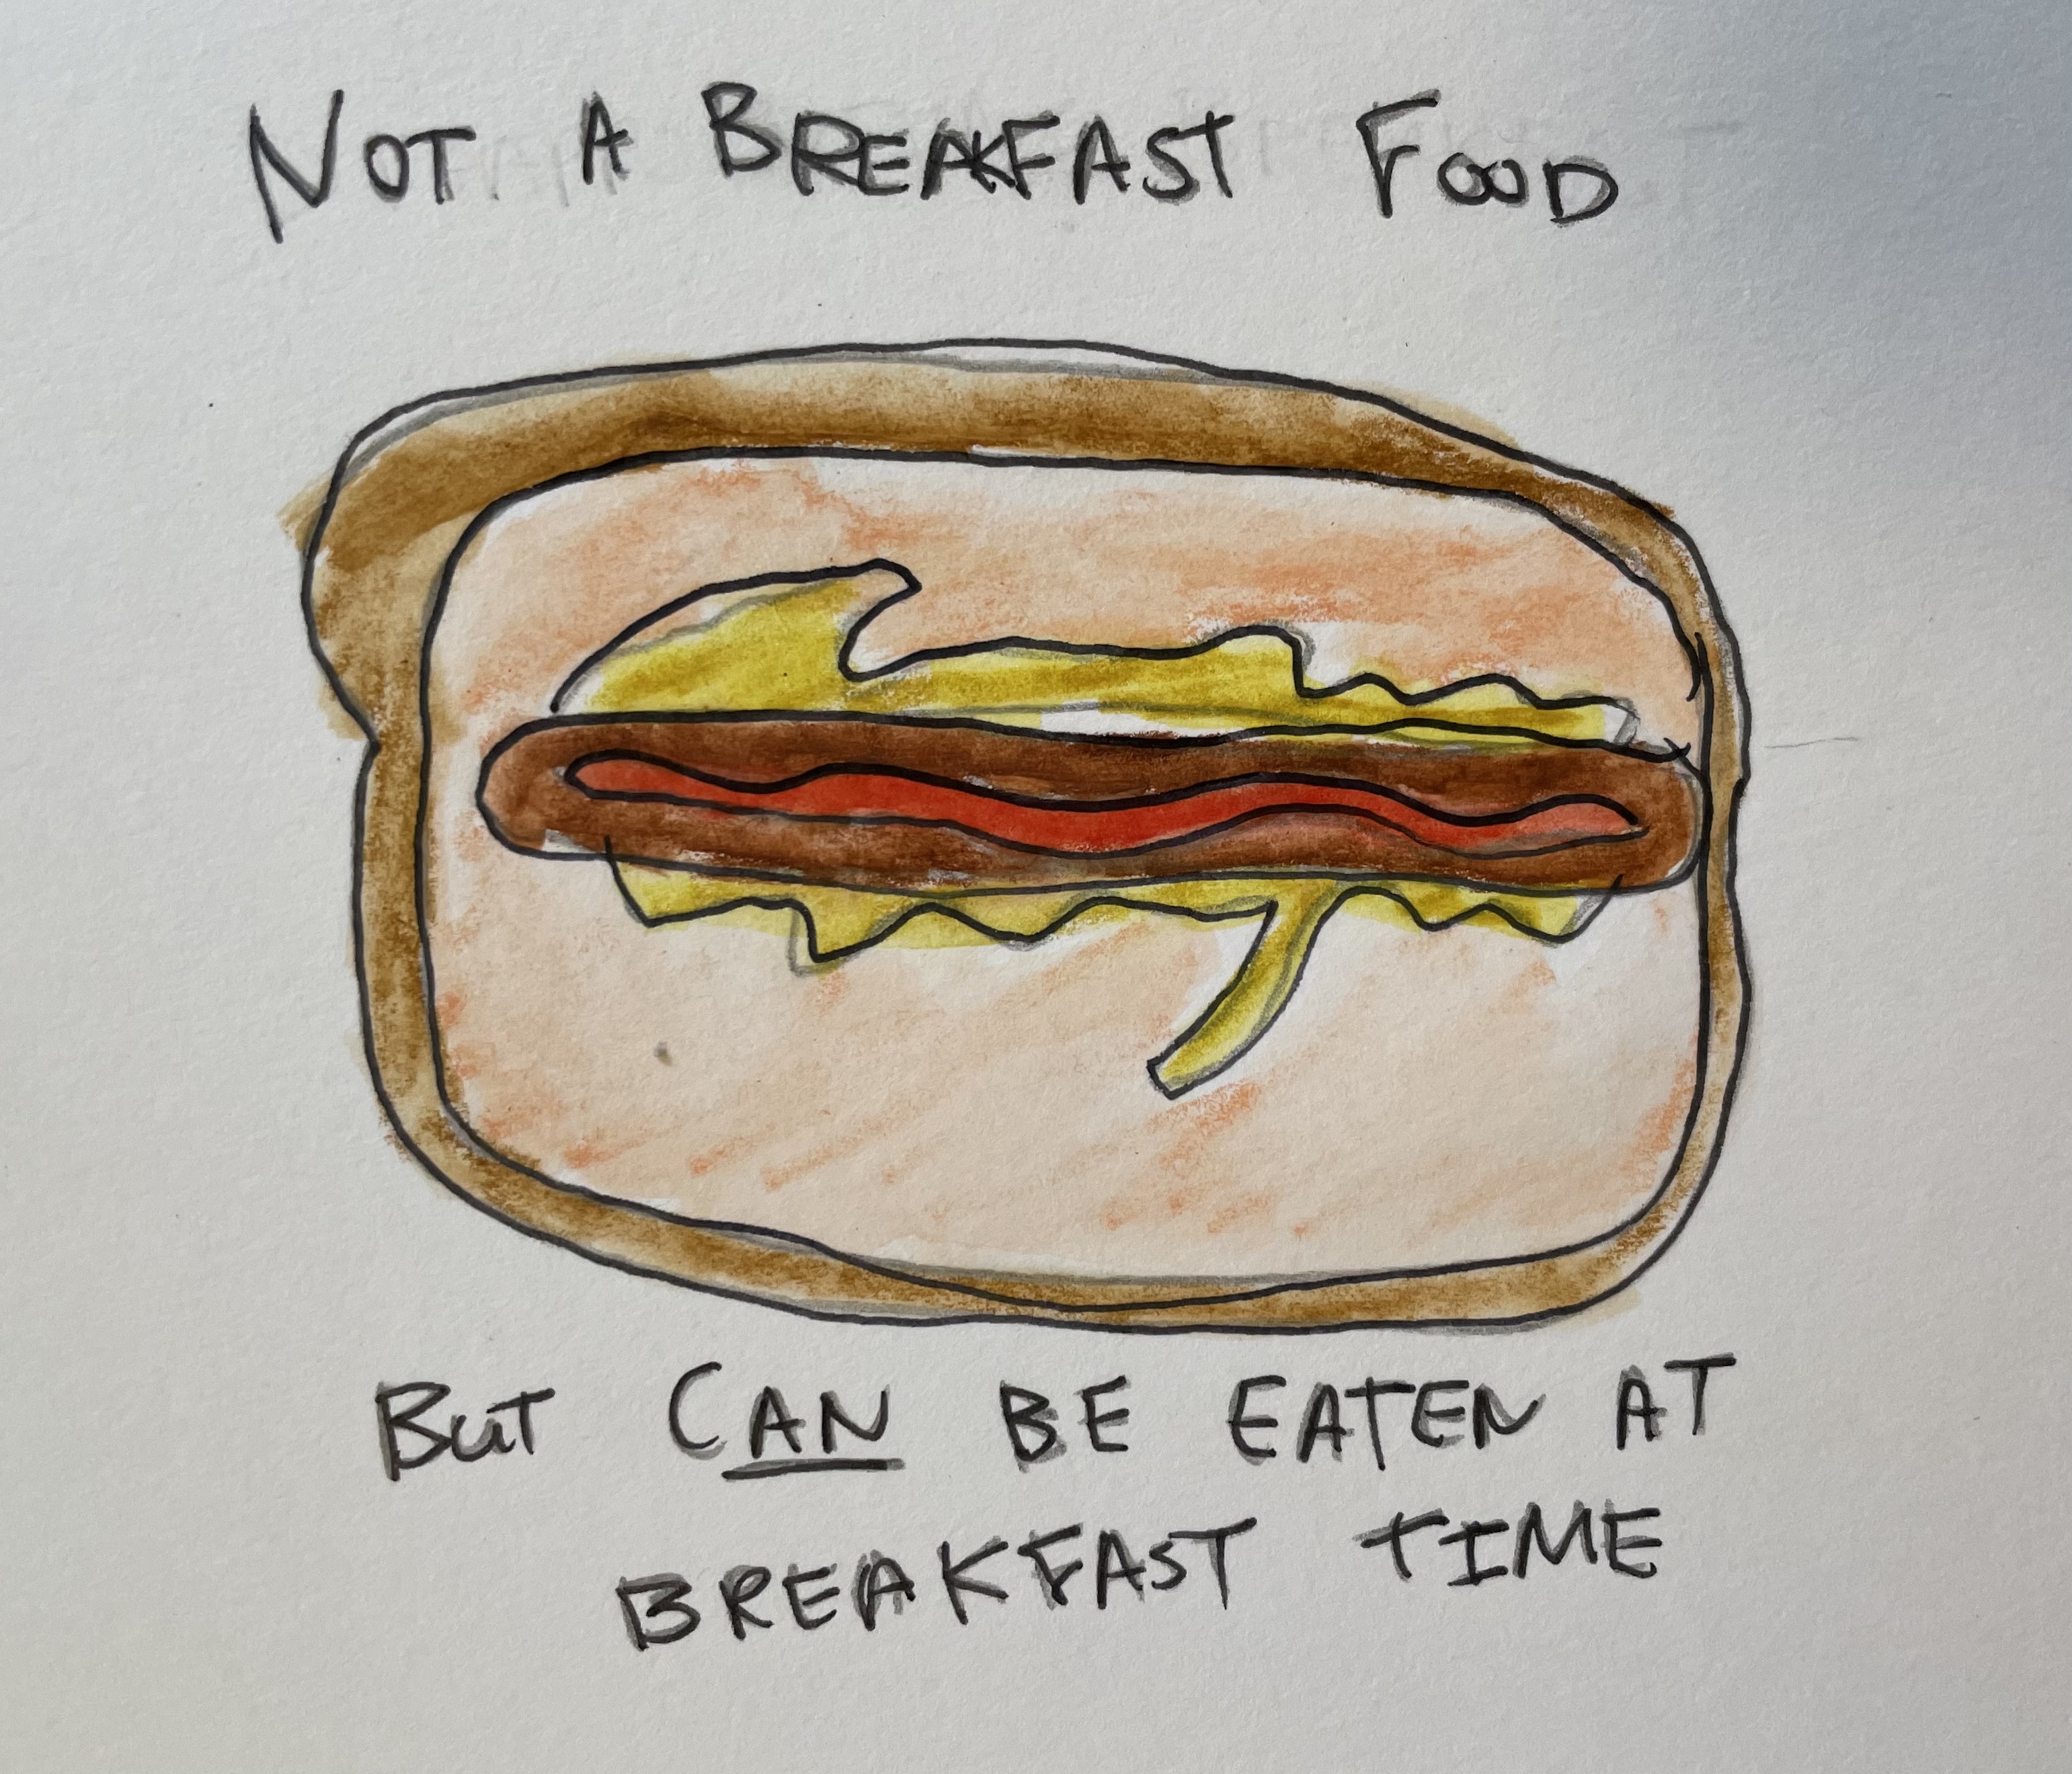 NOT A BREAKFAST FOOD
BUT CAN BE EATEN AT
BREAKFAST TIME